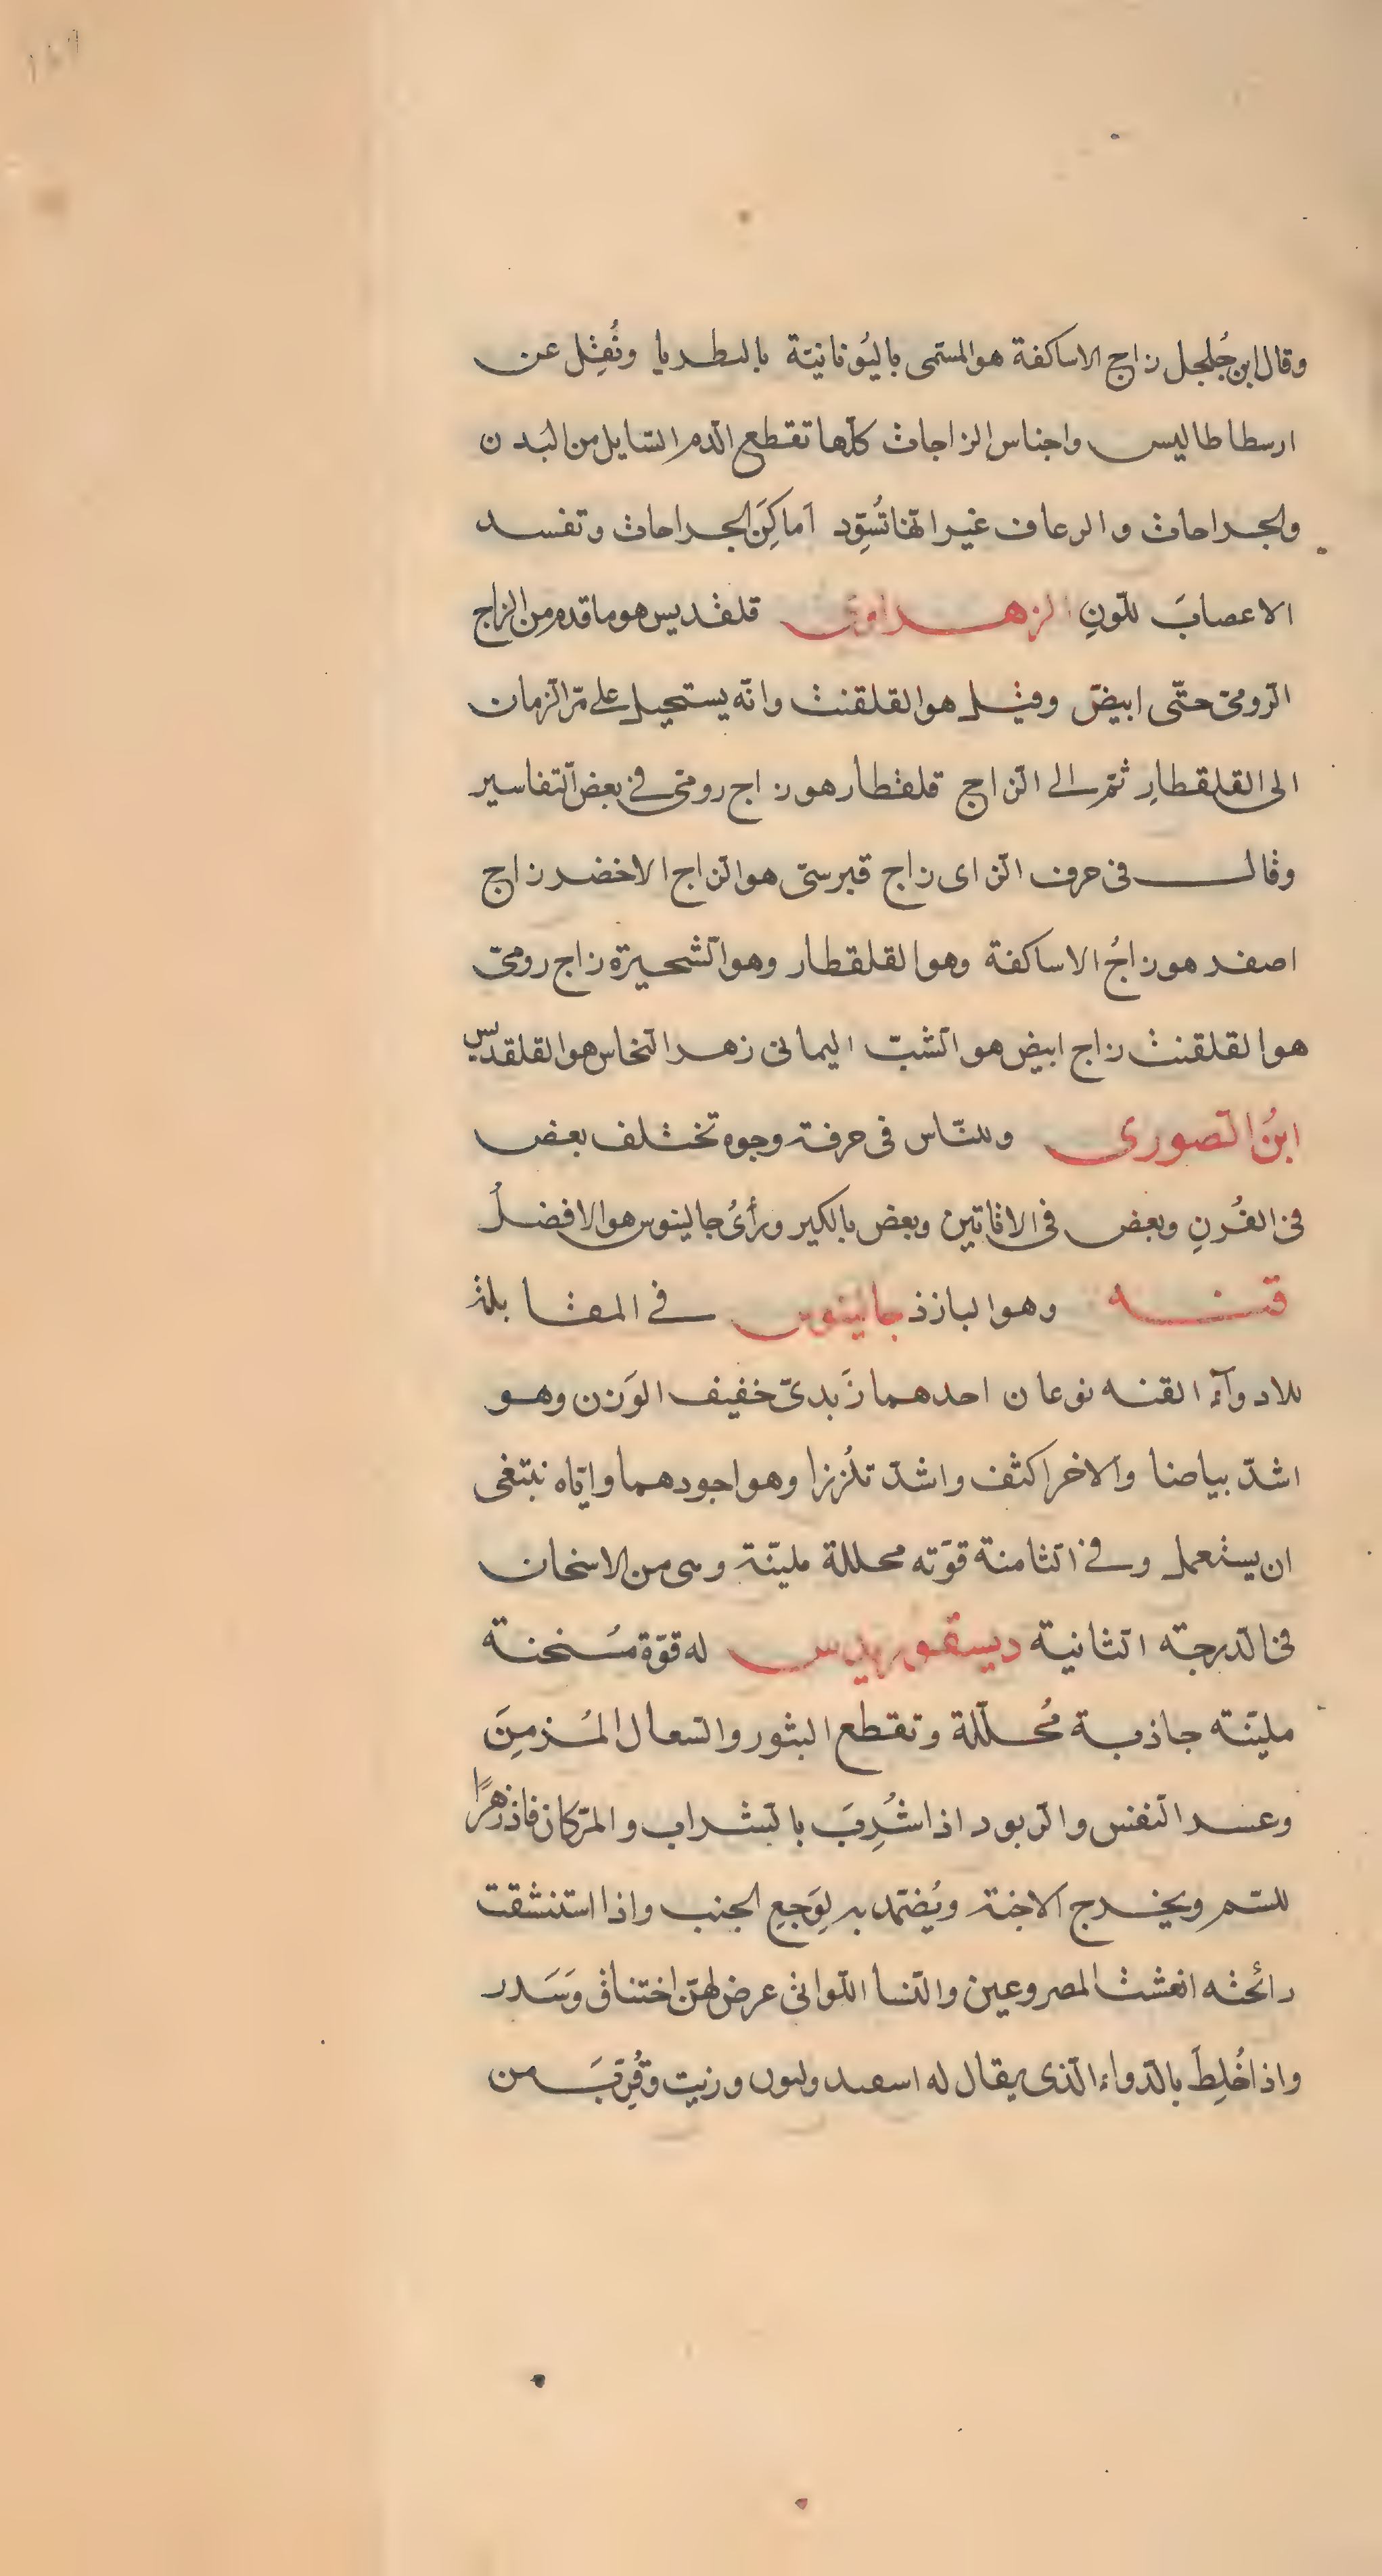 وقال ابن جُلجل زاج الاساكفة هو المسمى باليُونانيّة بالطريا ونُقِل عن
ارسطاطاليس واجناس الزاجات كلّها تقطع الدم السّايل من البُدن
والجراحات والرعاف غير انّها تُسَوِّد اماكِنَ الجراحات وتفسد
الاعصابَ للّونِ الزهراوي قلقديس هو ما قدم من الزاج
الرّومىّ حتّى ابيضّ وقيل هو القلقنت وانّه يستحيل على مرّ الزمان
الى القلقطارِ ثمّ الى الزّاج قلقطار هو زاج رومىّ فى بعض التّفاسير
وقال فى حرف الزّاى زاج قبرسىّ هو الزاج الاخضر زاج
اصفر هو زاجُ الاساكفة وهو القلقطار وهو الشّحيرة زاج رومىّ
هو القلقنت زاج ابيض هو الشّبّ اليمانى زهر النّحاس هو القلقديس
ابنُ الصّورى وللنّاس فى حرقة وجوه تختلف بعض
فى الفُرنِ وبعض فى الاتاتين وبعض بالكير ورأىُ جالينوس هو الافضلُ
قنه وهو البازذ جالينوس فى المقابلة
للادوآء القنه نوعان احدهما زَبدىّ خفيف الوَزن وهو
اشدّ بياضا والاخر اكثف واشدّ تلُززا وهو اجودهما وايّاه ينبغى
ان يستعمل وفى الثامنة قوّته محللة مليّنة وهى من الاسخان
فى الدّرجة الثانية ديسقوريدس له قوّة مُسخنة
مليّنه جاذبة مُحلّلة وتقطع البثور والسّعال المُزمِنَ
وعسر النّفس والرّبو د اذا شُرِبَ بالشّراب والمرّ كان فاذزهرًا
للسّم ويخرج الاجنة ويُضمّد به لِوَجعِ الجنب واذا استنشقت
رائحته انعشت المصروعين والنّسا اللّواتى عرض لهنّ اختناق وَسَدر
واذا خُلِطَ بالدّواء الّذى يقال له وزيت وقُرِّبَ من